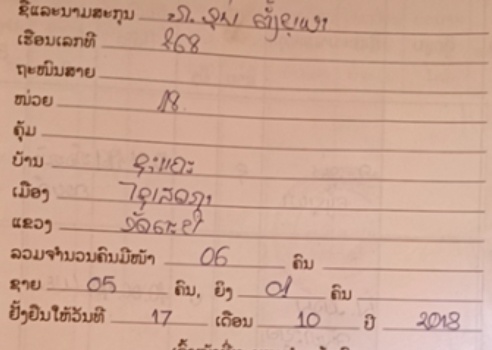 ຊື່ແລະນາມສະກຸນ
ເຮືອນເລກທີ 268
ຖະໜົນສາຍ
ໜ່ວຍ 18
ຄຸ້ມ
ບ້ານ
ເມືອງ ໄຊເສດຖາ
ແຂວງ ອັດຕະປື
ລວມຈຳນວນຄົນມີໜ້າ 06 ຄົນ
ຊາຍ 05 ຄົນ, ຍິງ 01 ຄົນ
ຢັ້ງຢືນໃຫ້ວັນທີ 17 ເດືອນ 10 ປີ 2018